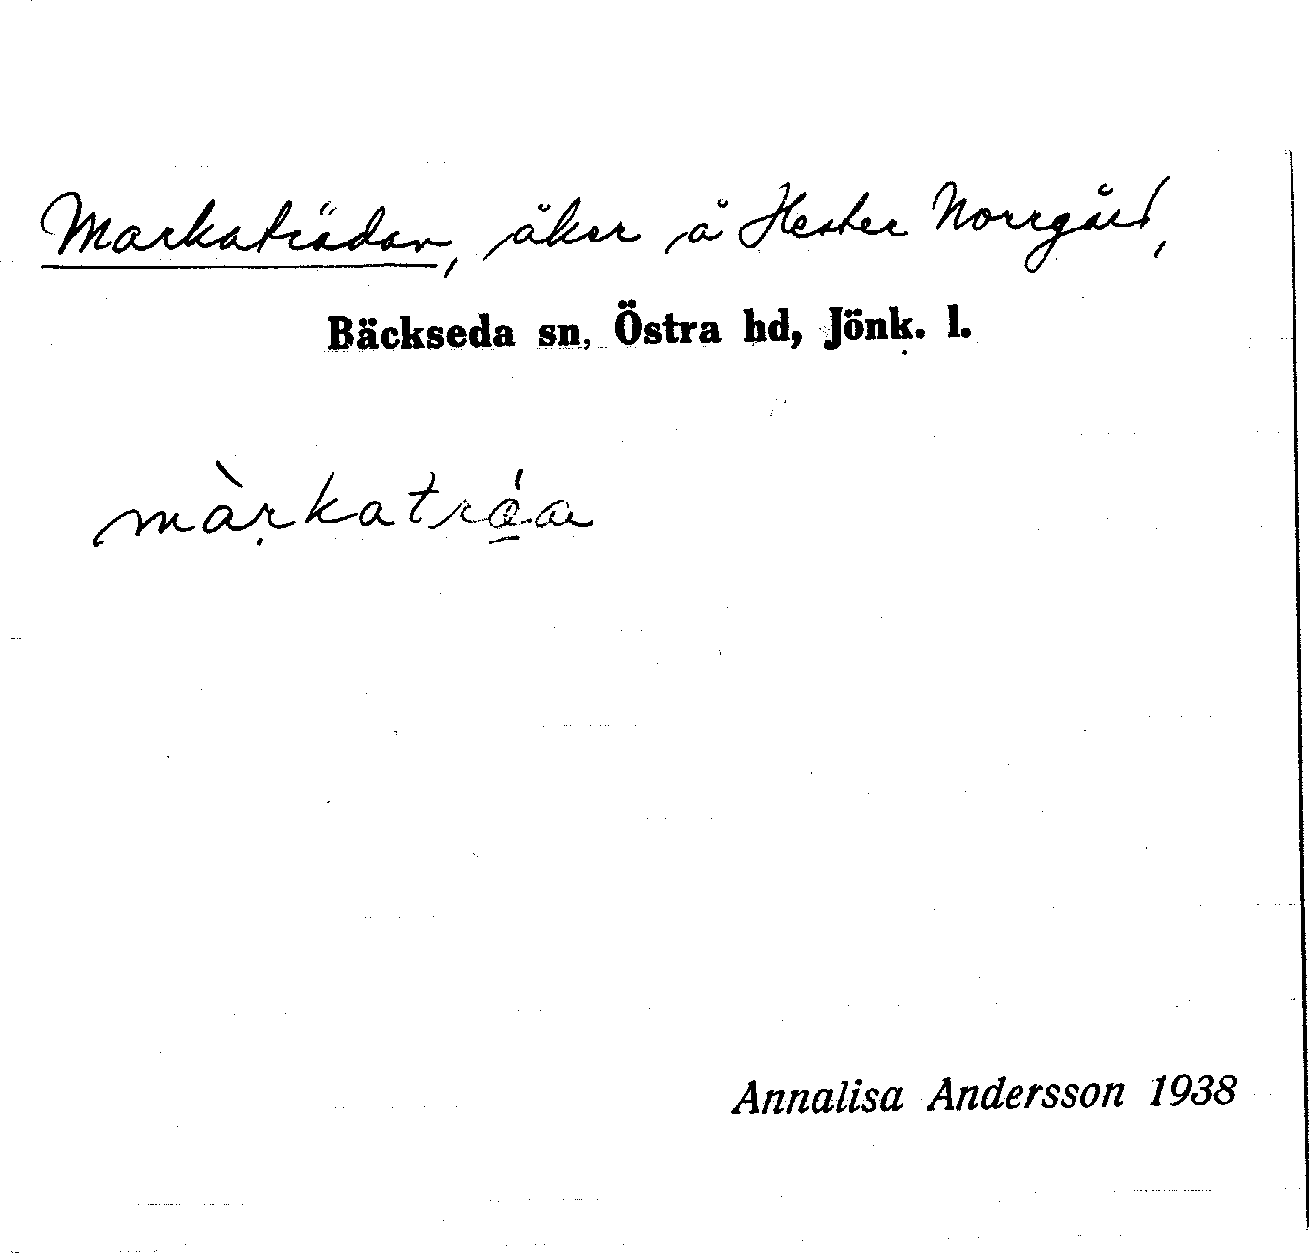 Markaträdan, åker å Hester Norrgård,
Bäckseda sn, Östra hd, Jönk. l.
màrkatráa
Annalisa Andersson 1938